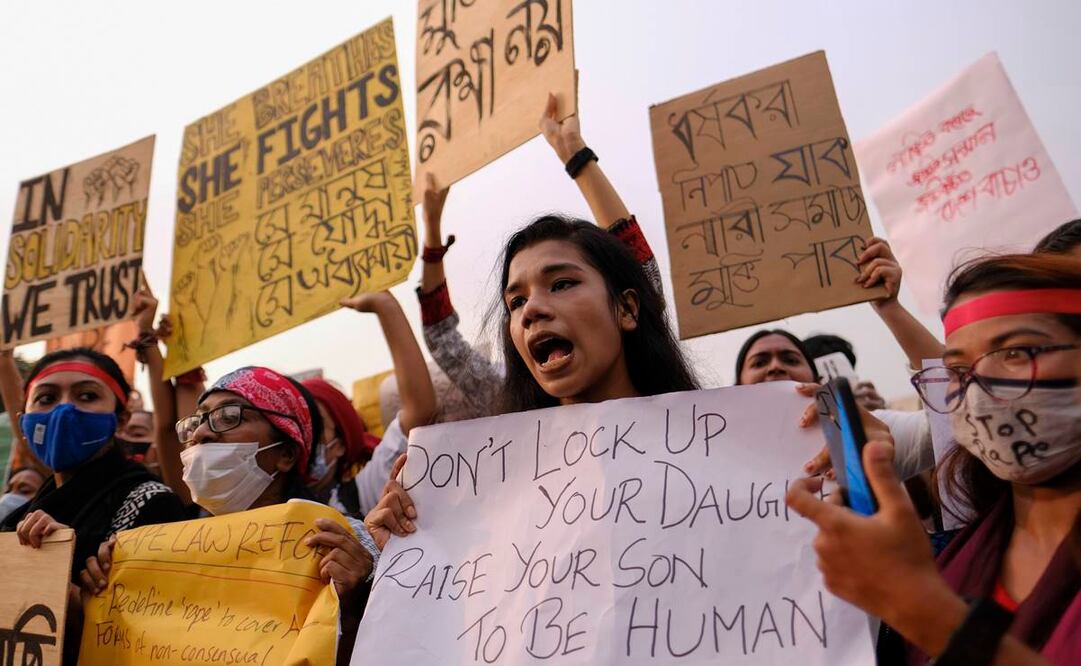 IN
SOLIDARITY
WE TRUST
SHE BREATHES
SHE FIGHTS
SHE PERSEVERES
সে মানুষ
সে যোদ্ধা
সে অধ্যবসায়ী
নয়
ধর্ষকরা
নিপাত যাক
নারী সমাজ
মুক্তি পাক
বাঁচাও
DON'T LOCK UP
YOUR DAUGH
RAISE YOUR SON
TO BE HUMAN
RAPE LAW REFO
- Redefine 'rape' to cover A
FORMS of non-consensual
STOP
Rape